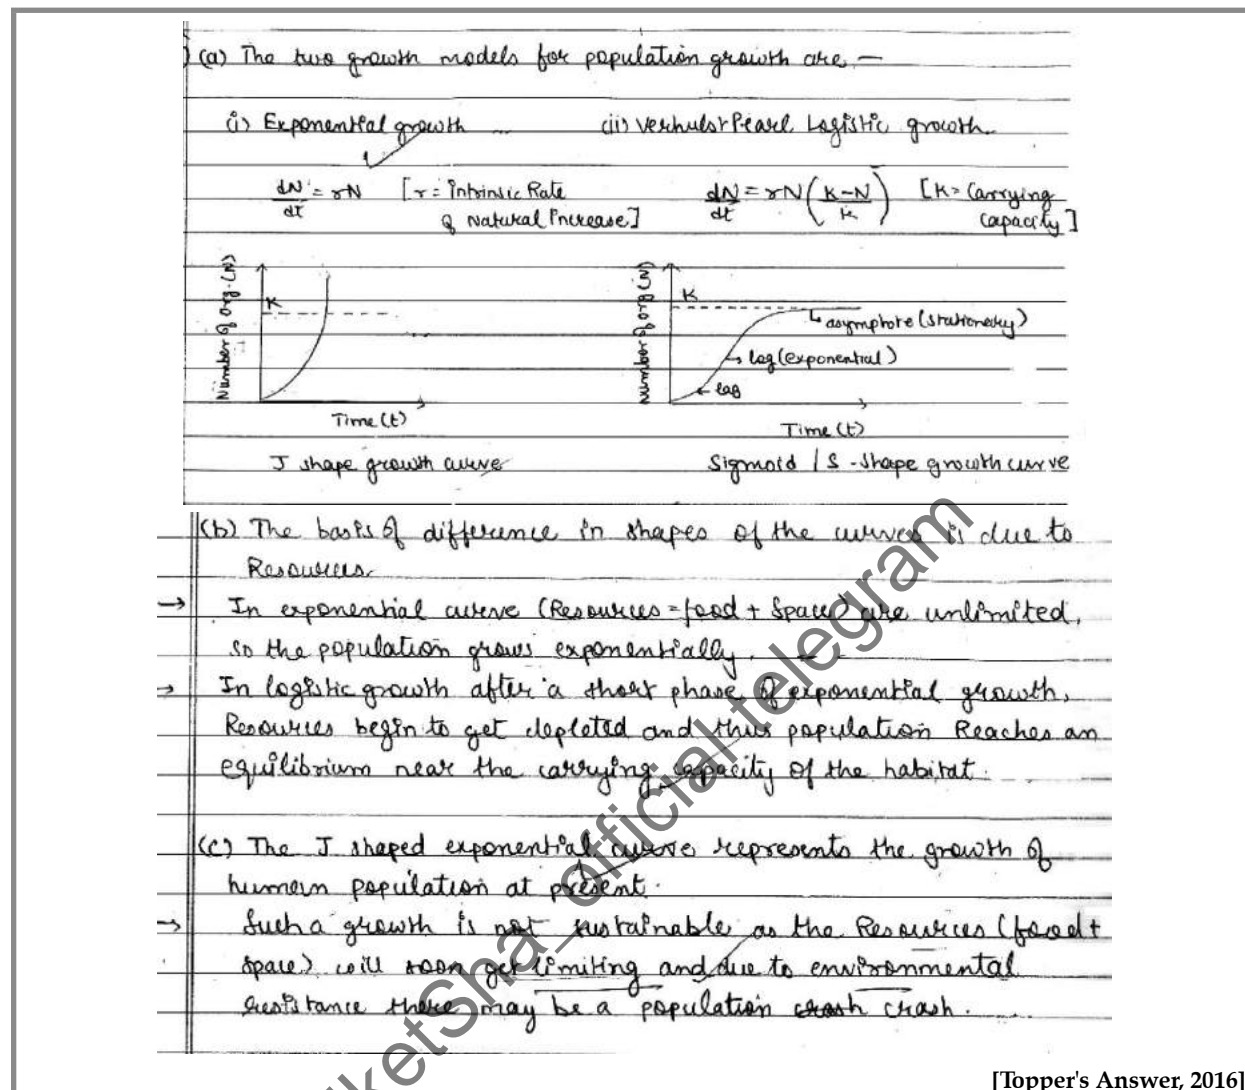 (a) The two growth models for population growth are —
(i) Exponential growth (ii) Verhulst Pearl Logistic growth
dN/dt = rN [r = Intrinsic Rate of Natural Increase] dN/dt = rN (K-N/K) [K = Carrying Capacity]
Number of Org. (N) K Time (t)
Number of Org (N) K asymptote (stationary) log (exponential) lag Time (t)
J shape growth curve Sigmoid / S - shape growth curve
(b) The basis of difference in shapes of the curves is due to
Resources.
→ In exponential curve (Resources = food + space) are unlimited,
so the population grows exponentially.
→ In logistic growth after a short phase of exponential growth,
Resources begin to get depleted and thus population Reaches an
equilibrium near the carrying capacity of the habitat.
(c) The J shaped exponential curve represents the growth of
human population at present.
→ Such a growth is not sustainable as the Resources (food +
space) will soon get limiting and due to environmental
resistance there may be a population crash crash.
ketSha_official telegram
[Topper's Answer, 2016]